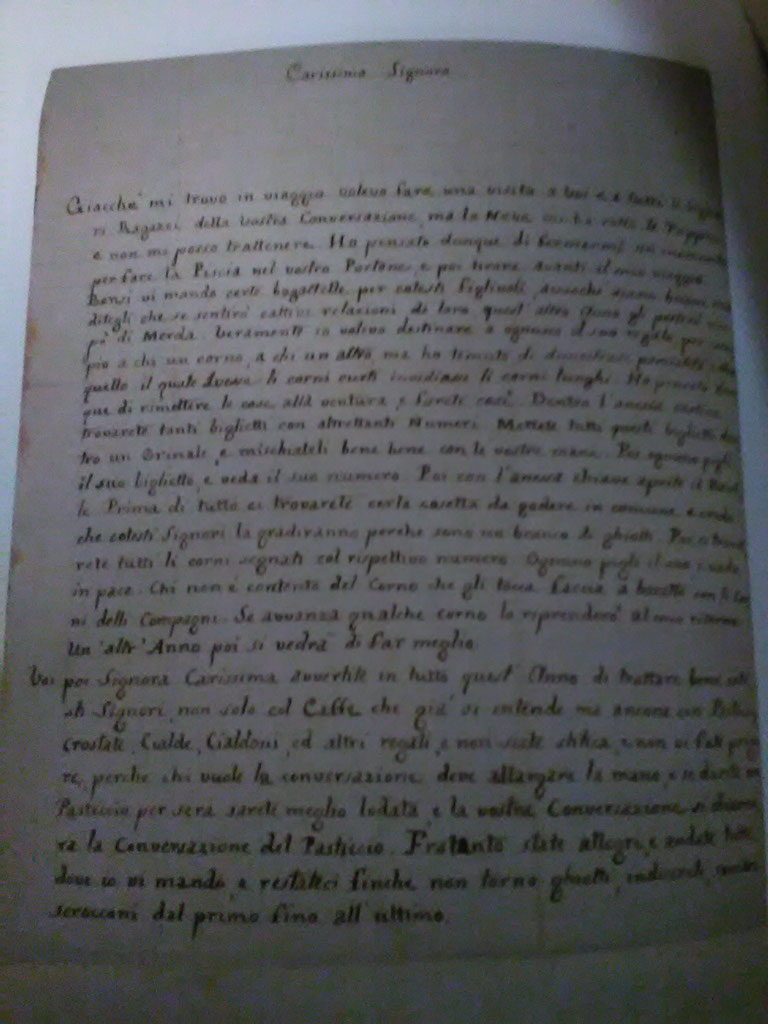 Carissima Signora
Giacchè mi trovo in viaggio volevo fare una visita a Voi e a tutti li Signo
ri Ragazzi della Vostra Conversazione, ma la Neve mi ha rotto le
e non mi posso trattenere. Ho pensato dunque di fermarmi un momento
per fare la Piscia nel vostro Portone, e poi tirare avanti il mio viaggio.
Bensì vi mando certe bagattelle per cotesti figliuoli, acciocché siano buoni, ma
ditegli che se sentirò cattive relazioni di loro quest' altro Anno gli porterò un
pò di Merda. Veramente io volevo destinare a ognuno il suo regalo, per
pio a chi un corno, a chi un altro, ma ho temuto di dimostrare parzialità, e che
quello il quale avesse li corni curti invidiasse li corni lunghi. Ho pensato dun
que di rimettere le cose alla ventura, e farete così. Dentro l'anessa
trovarete tanti biglietti con altrettanti Numeri. Mettete tutti questi biglietti den
tro un Orinale, e mischiateli bene bene con le vostre mane. Poi ognuno pigli
il suo biglietto, e veda il suo numero. Poi con l'anessa chiave aprite il
le Prima di tutto ci trovarete certa cosetta da godere in comune, e credo
che cotesti Signori la gradiranno perché sono un branco di ghiotti. Poi ci trova
rete tutti li corni segnati col rispettivo numero. Ognuno pigli il suo e vada
in pace. Chi non è contento del Corno che gli tocca, faccia a baratto con li Cor
ni delli Compagni. Se avvanza qualche corno lo riprenderò al mio ritorno.
Un 'altr' Anno poi si vedrà di far meglio.
Voi poi Signora Carissima avvertite in tutto quest' Anno di trattare bene cote
sti Signori, non solo col Caffè che già si intende ma ancora con Pasticci,
Crostate, Cialde, Cialdoni, ed altri regali, e non siate stitica, e non vi fate prega
re, perche chi vuole la conversazione deve allargare la mano, e se darete un
Pasticcio per sera sarete meglio lodata, e la vostra Conversazione si chiame
rà la Conversazione del Pasticcio. Frattanto state allegri, e andate tutti
dove io vi mando, e restateci finche non torno ghiotti, indiscreti,
scrocconi dal primo fino all'ultimo.